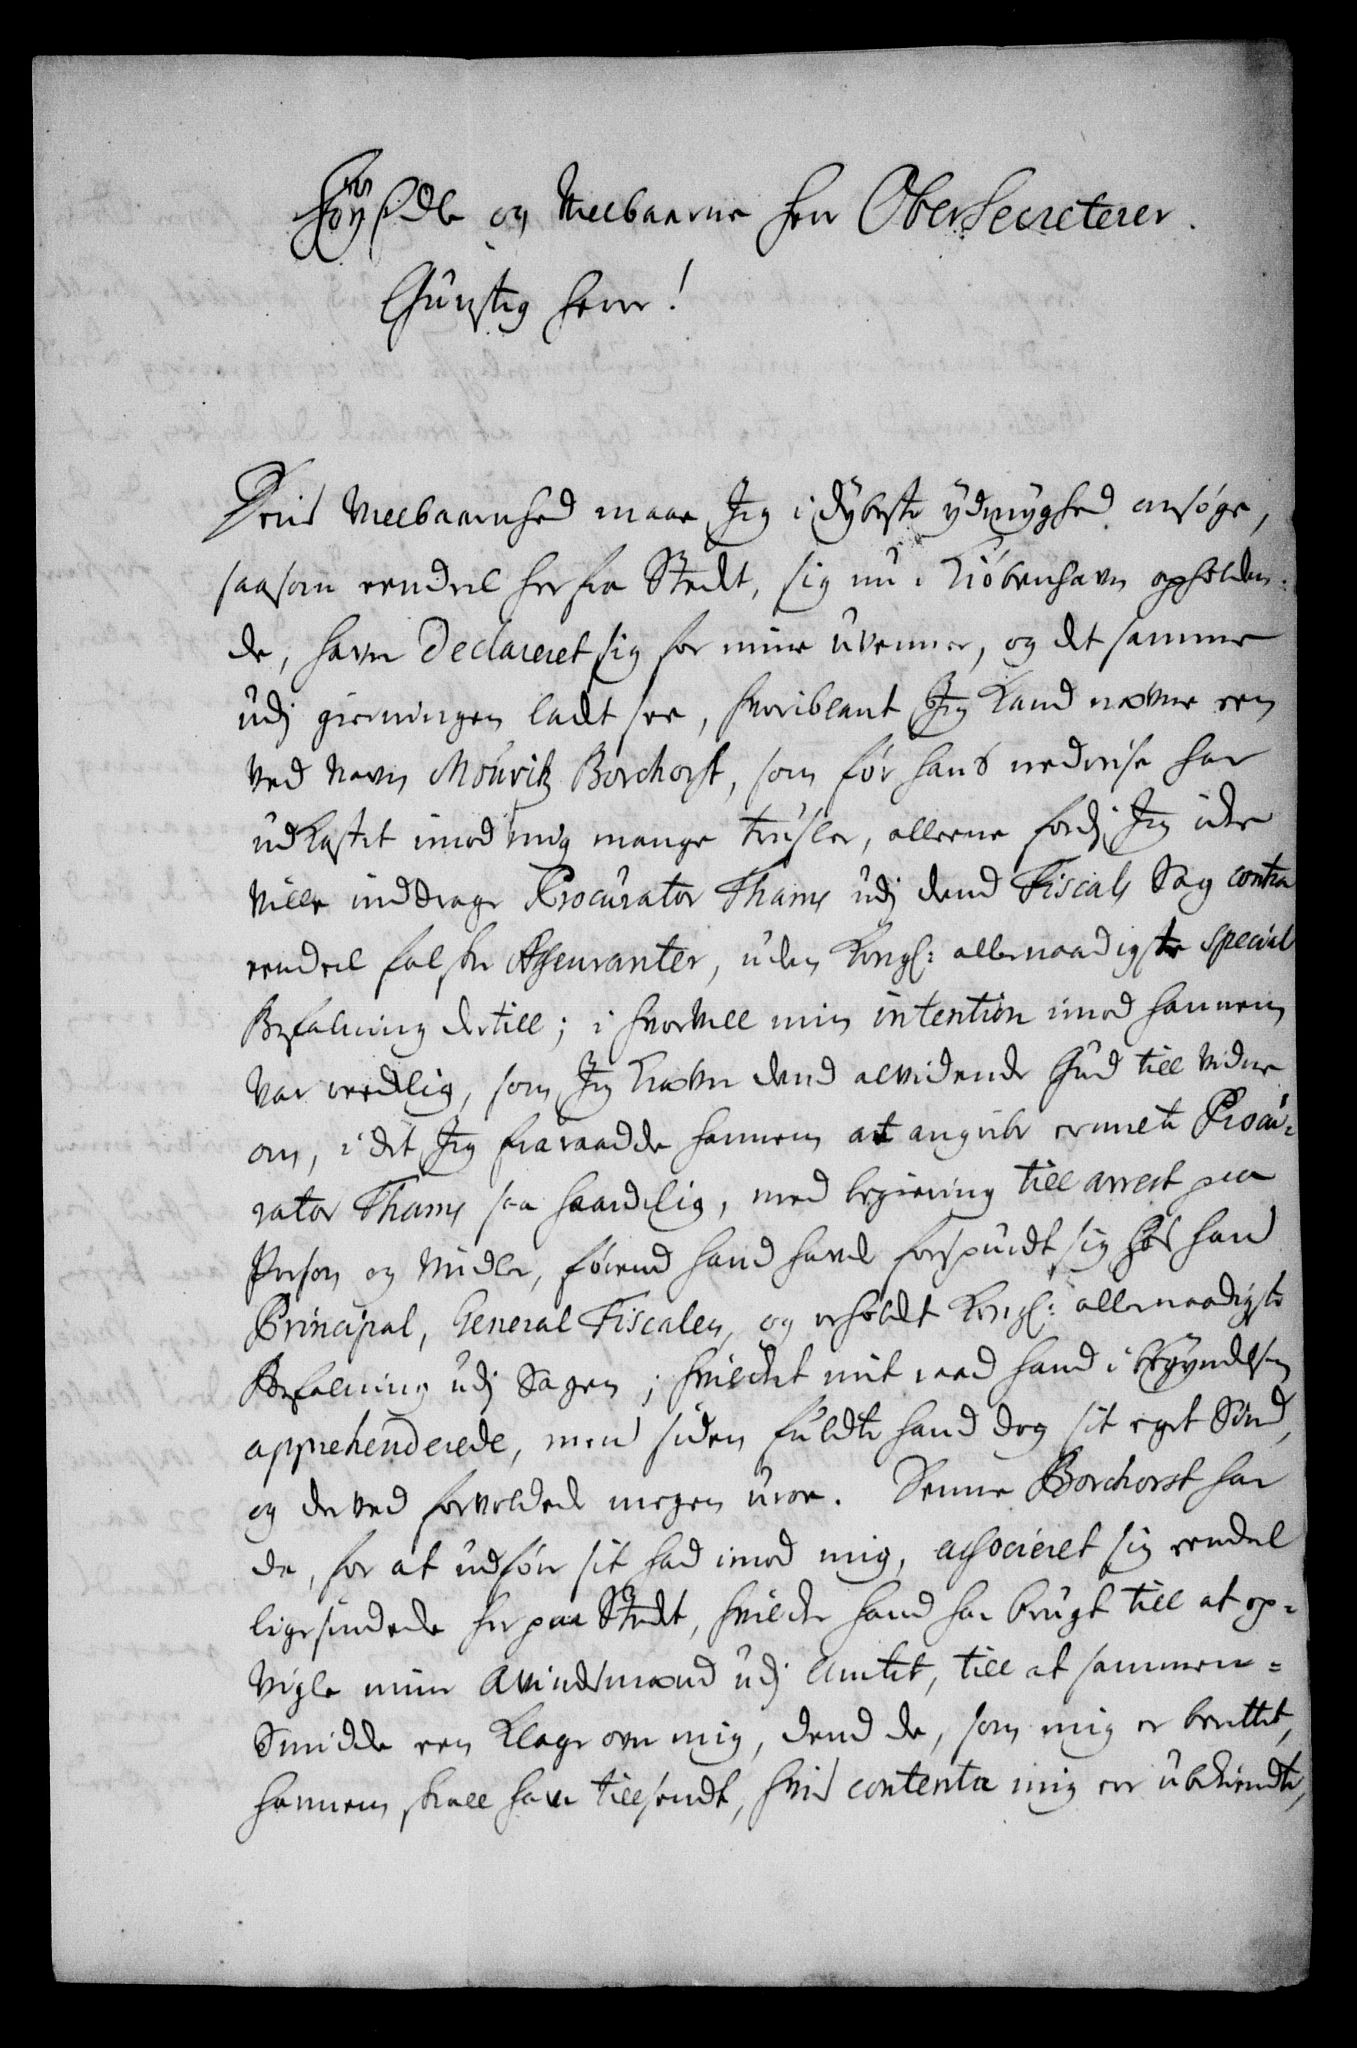 HöyEdle og Velbaarne Herr OberSecreterer.
Gunstig Herre!
Deris Velbaarnhed maae Jeg i dybeste ydmyghed ansøge,
saasom eendeel her fra Stedet, sig nu i Kiøbenhavn opholden:
de, haver Declareret sig for mine uvenner, og det samme
udj gierningen ladt see, hvoriblant Jeg Kand næfne een
ved Navn Mouritz Borchorst, som før hans nedreise har
udkastet imod mig mange trusler, alleene fordj Jeg icke
ville inddrage Procurator Thams udj dend Fiscals Sag contra
eendeel falske Asseuranter, uden Kongl: allernaadigste Special
Befalning dertill; i hvorvell min intention imod hannem
var reedlig, som Jeg tager dend alvidende Gud till vidne
om, i det Jeg fraraadde hannem at angribe ermelte Procu:
rator Thams saa haardelig, med begiering till arrest paa
Person og Midler, førend hand havde forspurdt sig hos hans
Principal, General Fiscalen, og erholdt Kongl: allernaadigste
Befalning udj Sagen; hvilchet mit raad hand i begyndelsen
apprehenderede, men siden fulte hand dog sit eget Sind,
og derved forvolded megen uroe. Denne Borchorst har
da, for at udføre sit had imod mig, associeret sig eendeel
ligesindede her paa Stedet, hvilcke hand har brugt till at op=
vigle mine Avindsmænd udj Amtet, till at sammen=
Smidde een Klage over mig, dend de, som mig er berettet,
hannem skall have tillsendt, hvis contenta mig er ubekiendt,